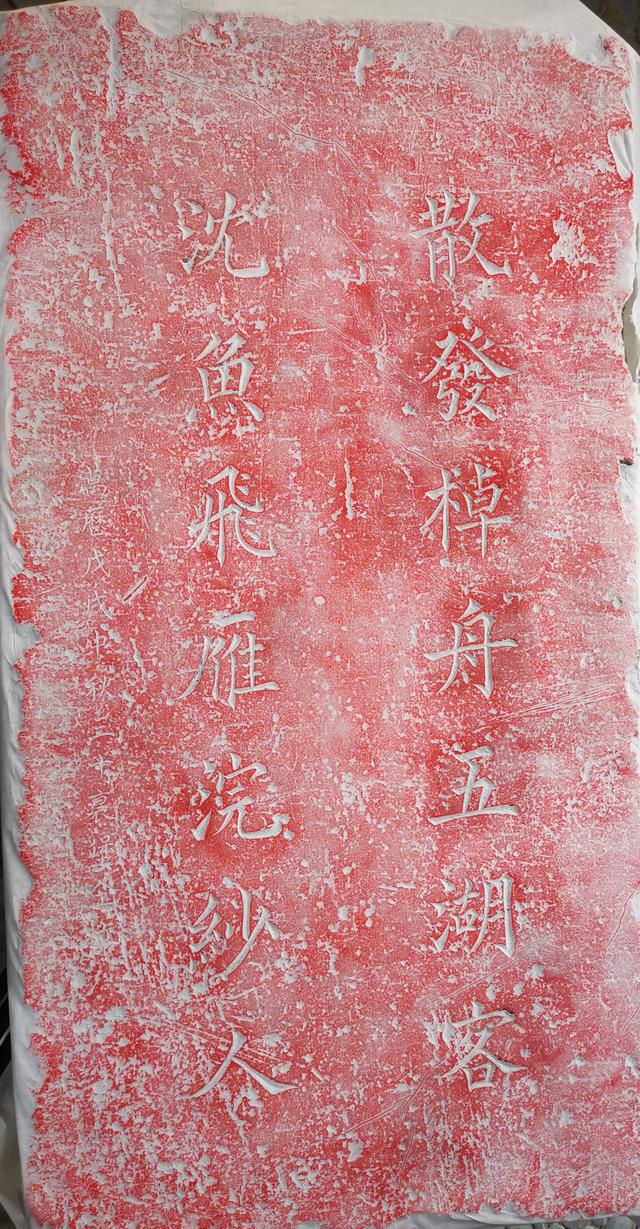 散發棹舟五湖客
沈魚飛雁浣紗人
萬歷戊戌中秋